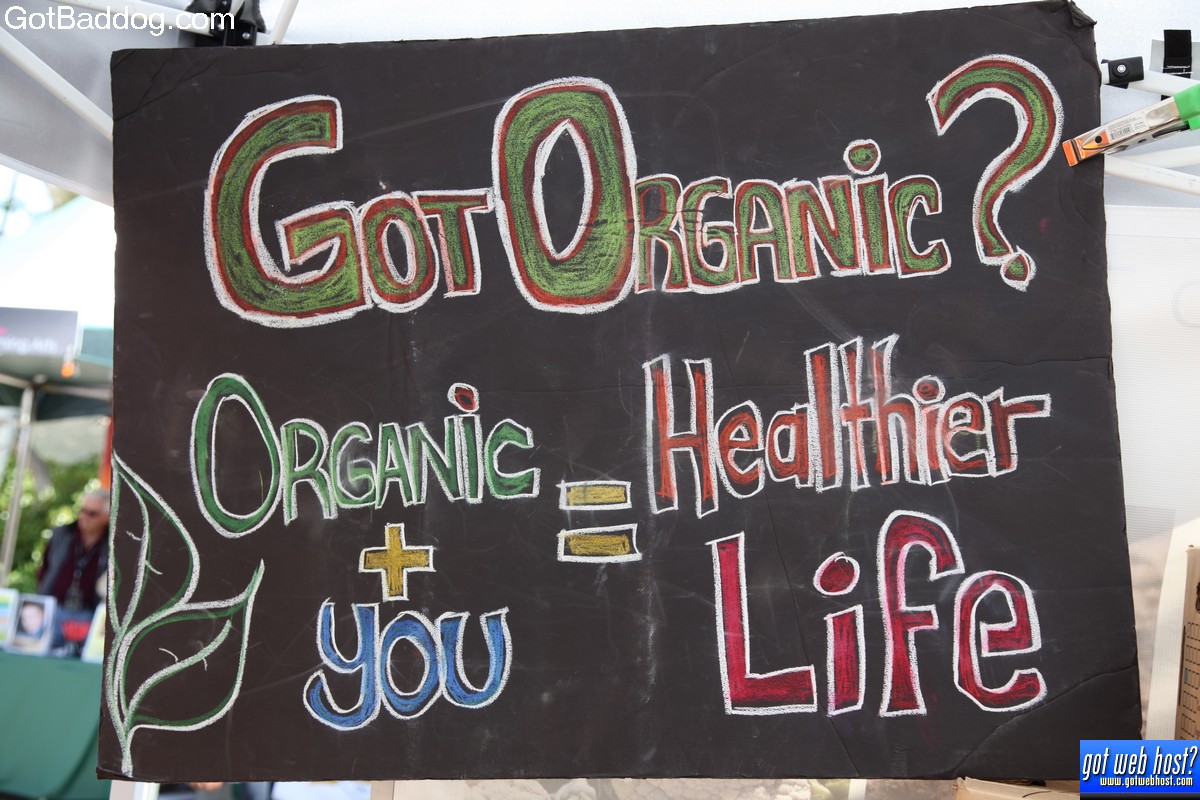 GotBaddog.com
Got Organic?
Organic
+
you
=
Healthier
Life
got web host?
www.gotwebhost.com